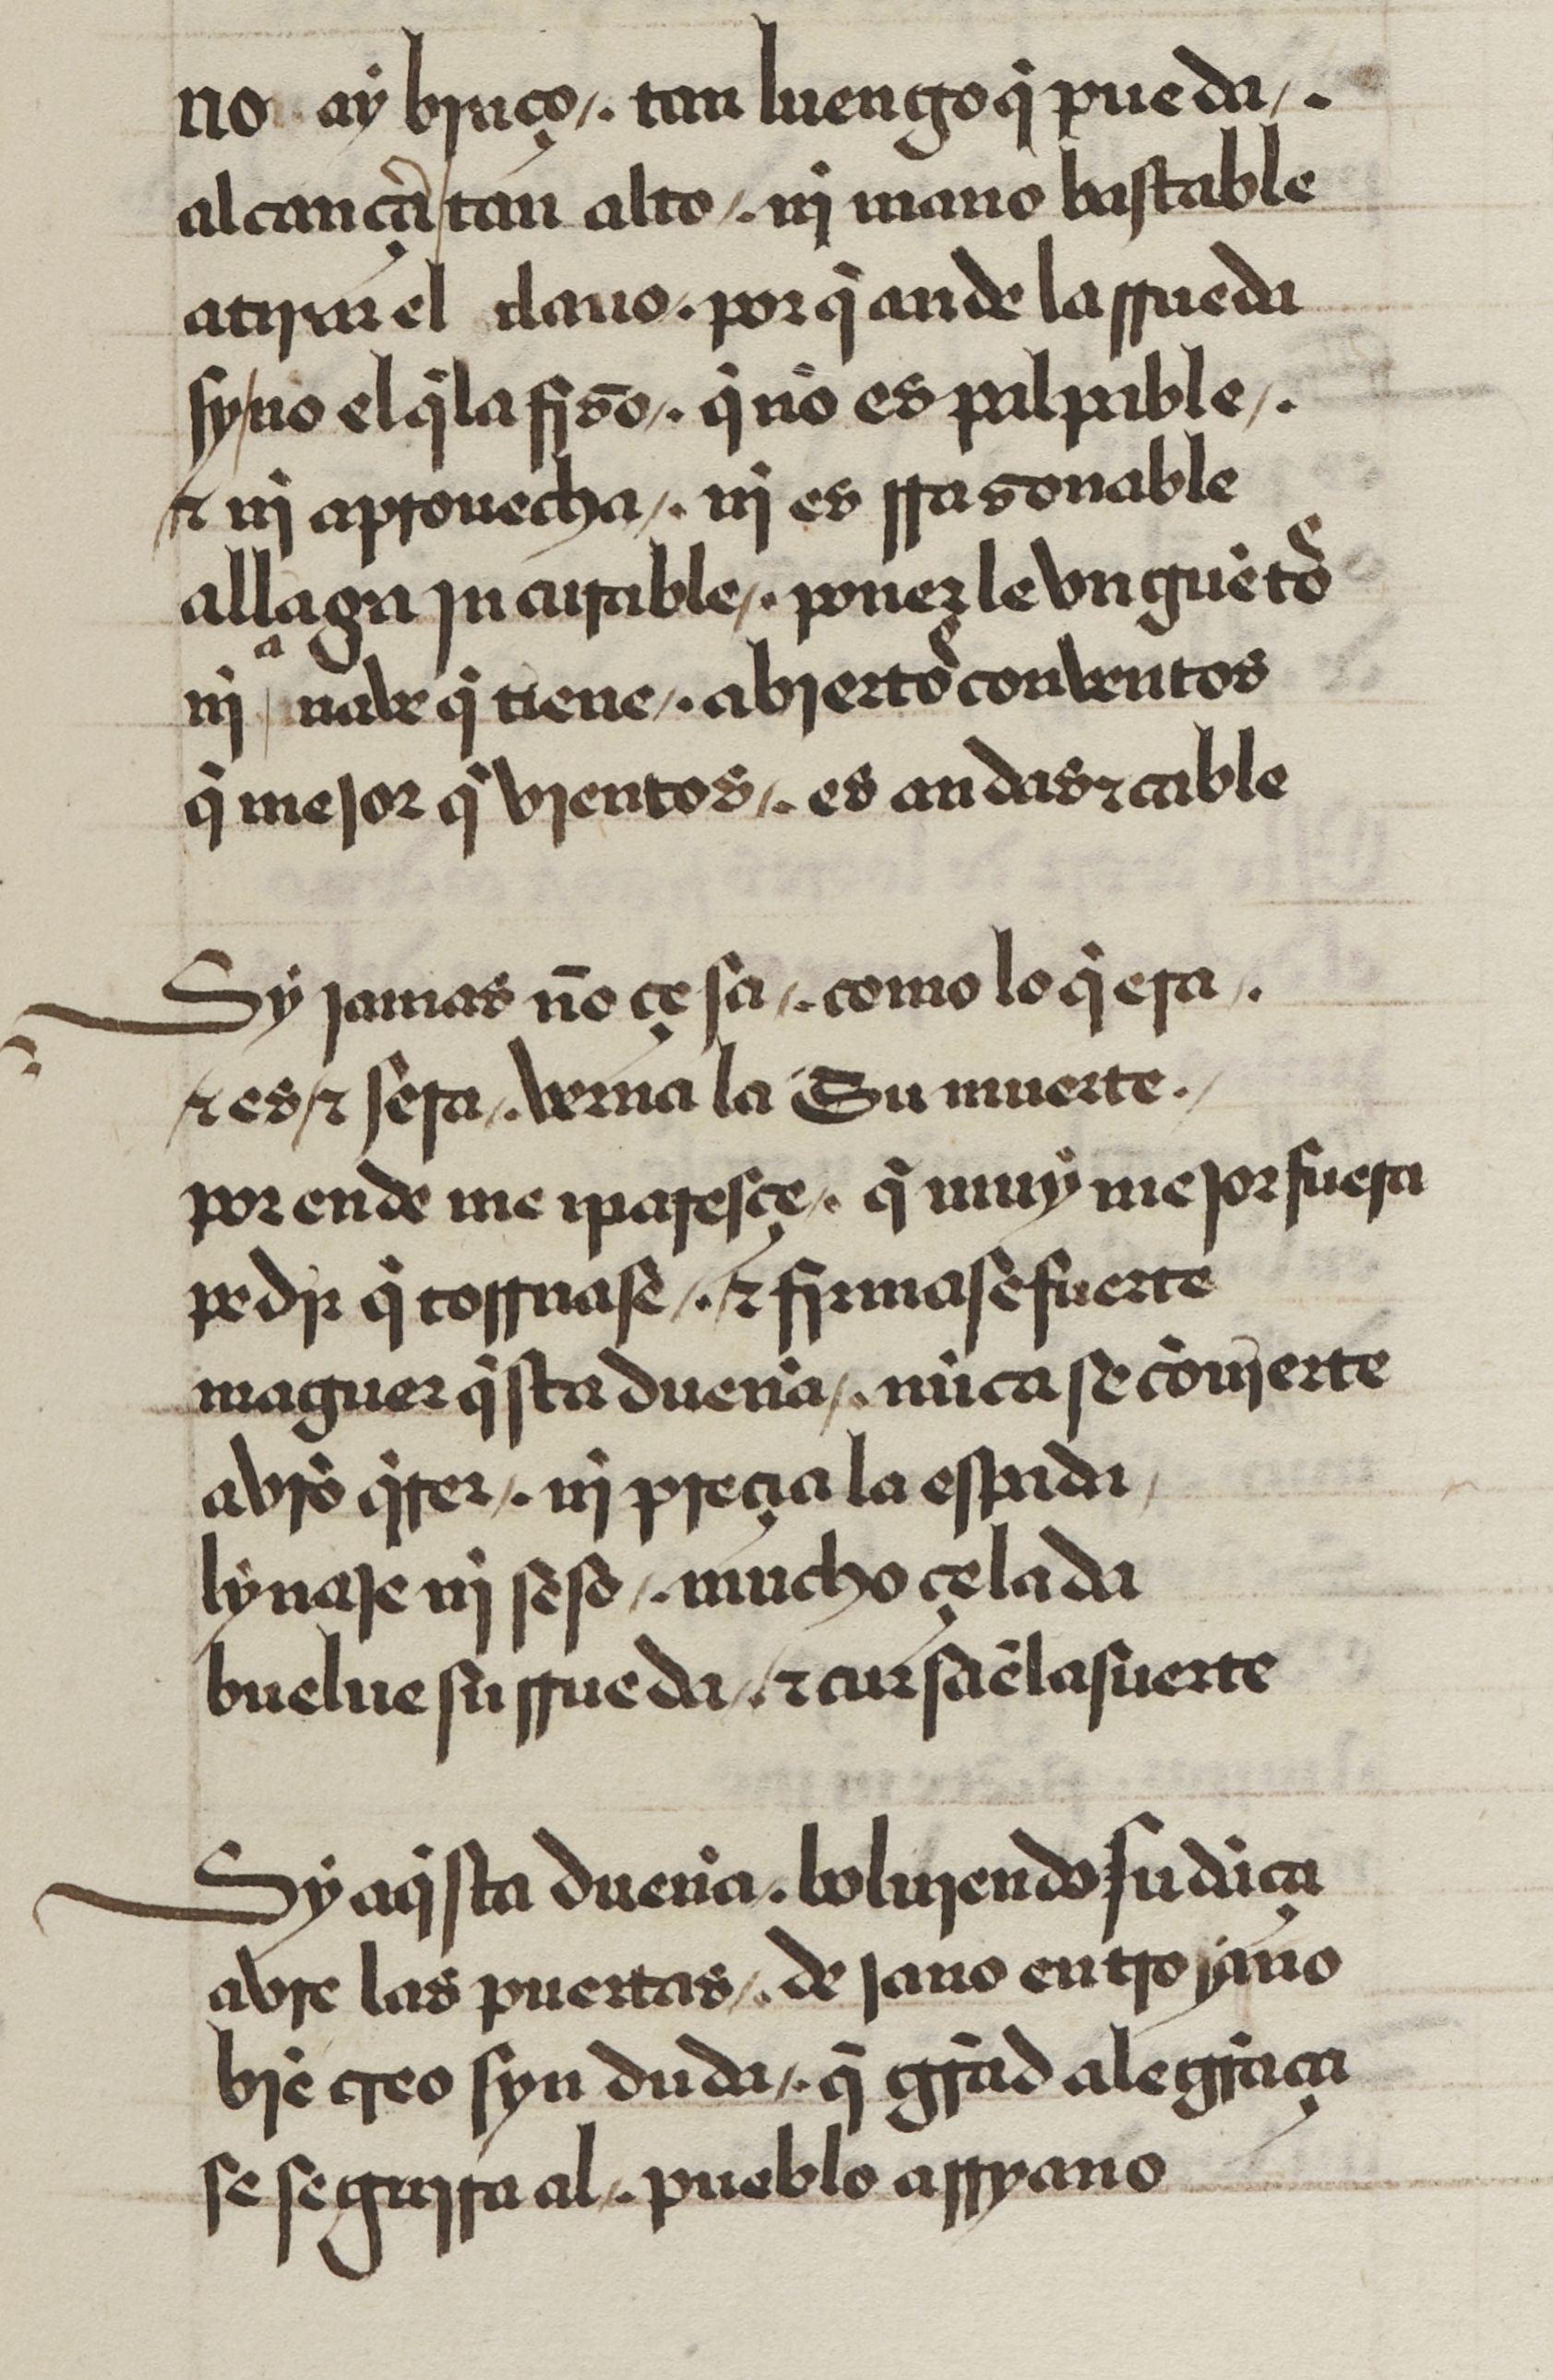 no ay braço /. tan luengo q̃ pueda /.
alcançar̃ tan alto /. nj mano bastable
a tirar el clauo . por q̃ ande la rrueda
sy no el q̃ la fizo /. q̃ no es palpable /.
⁊ nj aprouecha /. nj es rrazonable
allaga jncurable /. poner le vnguẽtos
nj a naue q̃ tiene /. abiertos conventos
q̃ mejor q̃ vientos /. es andas ⁊ cable

Sy jamas nõ çesa /. como lo q̃ era /.
⁊ es ⁊ sera /. verna la su muerte . /
por ende me paresçe /. q̃ muy mejor fuera
pedir q̃ torrnase /. ⁊ firmase fuerte
maguer q̃sta dueña /. nũca se cõuierte
a vr̃o q̃rer /. nj preçia la espada /
lynaje nj seso /. mucho çelada
buelue su rrueda /. ⁊ cursa ẽ la suerte

Sy aq̃sta dueña . boluiendo su dãça
abre las puertas /. de jano entroyano
biẽ creo syn duda /. q̃ grãd alegrãça
se seguira al /. pueblo assyano